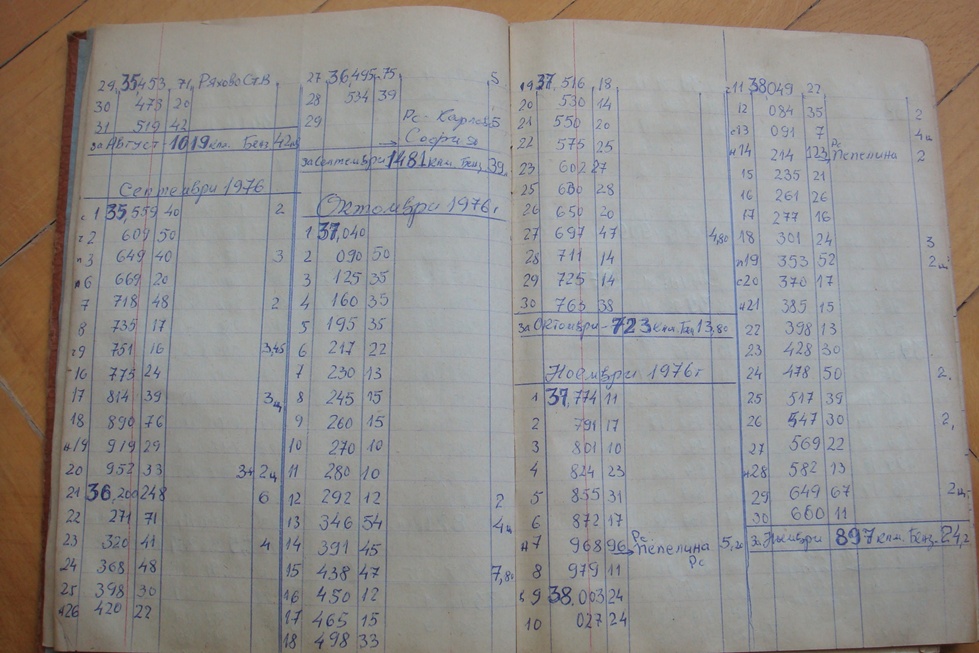 29 35453 71 Ряхово Ст.В
30 473 20
31 519 42
за Август - 1019 клм. Бенз 42
Септември 1976
с 1 35,559 40 2
2 609 50
п 3 649 40 3
6 669 20
7 718 48 2
8 735 17
ч 9 751 16 3,45
16 775 24
17 814 39 3ц
18 890 76
н 19 919 29
20 952 33 2ц
21 36,200 248 6
22 271 71
23 320 41 4
24 368 48
25 398 30
н26 420 22
27 36,495 75 5
28 534 39
29 Рс - Карлово 5
→ София
за Септември 1481 клм. Бенз. 39
Октомври 1976 г
1 37,040
2 090 50
3 125 35
4 160 35
5 195 35
6 217 22
7 230 13
8 245 15
9 260 15
10 270 10
11 280 10
12 292 12 2
13 346 54 4ц
14 391 45
15 438 47 7,80
16 450 12
17 465 15
18 498 33
19 37,516 18
20 530 14
21 550 20
22 575 25
23 602 27
25 630 28
26 650 20
27 697 47 4,80
28 711 14
29 725 14
30 763 38
за Октомври - 723 клм. Бенз 13,80
Ноември 1976 г
1 37,774 11
2 791 17
3 801 10
4 824 23
5 855 31
6 872 17
н 7 968 96 Рс → Пепелина Рс 5,20
8 979 11
9 38.003 24
10 027 24
11 38049 22
12 084 35 2
с13 091 7 4ц
н14 214 123 Рс → Пепелина 2
15 235 21
16 261 26
17 277 16
18 301 24 3
п19 353 52 2ц
с20 370 17
н21 385 15
22 398 13
23 428 30
24 478 50 2.
25 517 39
26 547 30 2,
27 569 22
н28 582 13
29 649 67 2ц.
30 660 11
за Ноември 897 клм. Бенз. 24,2